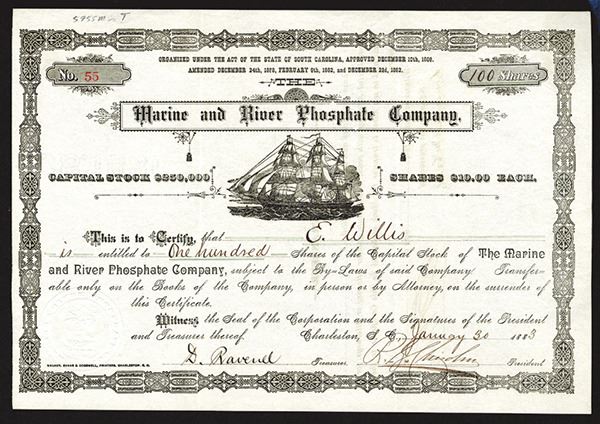 5755m - T
ORGANIZED UNDER THE ACT OF THE STATE OF SOUTH CAROLINA, APPROVED DECEMBER 10th, 1869.
AMENDED DECEMBER 24th, 1879, FEBRUARY 9th, 1882, and DECEMBER 22d, 1882.
No. 55
100 Shares
THE
Marine and River Phosphate Company.
CAPITAL STOCK $250,000,
SHARES $10.00 EACH.
This is to Certify, that E. Willis
is entitled to One hundred Shares of the Capital Stock of The Marine
and River Phosphate Company, subject to the By-Laws of said Company Transfer-
able only on the Books of the Company, in person or by Attorney, on the surrender of
this Certificate.
Witness, the Seal of the Corporation and the Signatures of the President
and Treasurer thereof. Charleston, S. C., January 30 1883
D. Ravenel Treasurer. President
WALKER, EVANS & COGSWELL, PRINTERS, CHARLESTON, S. C.